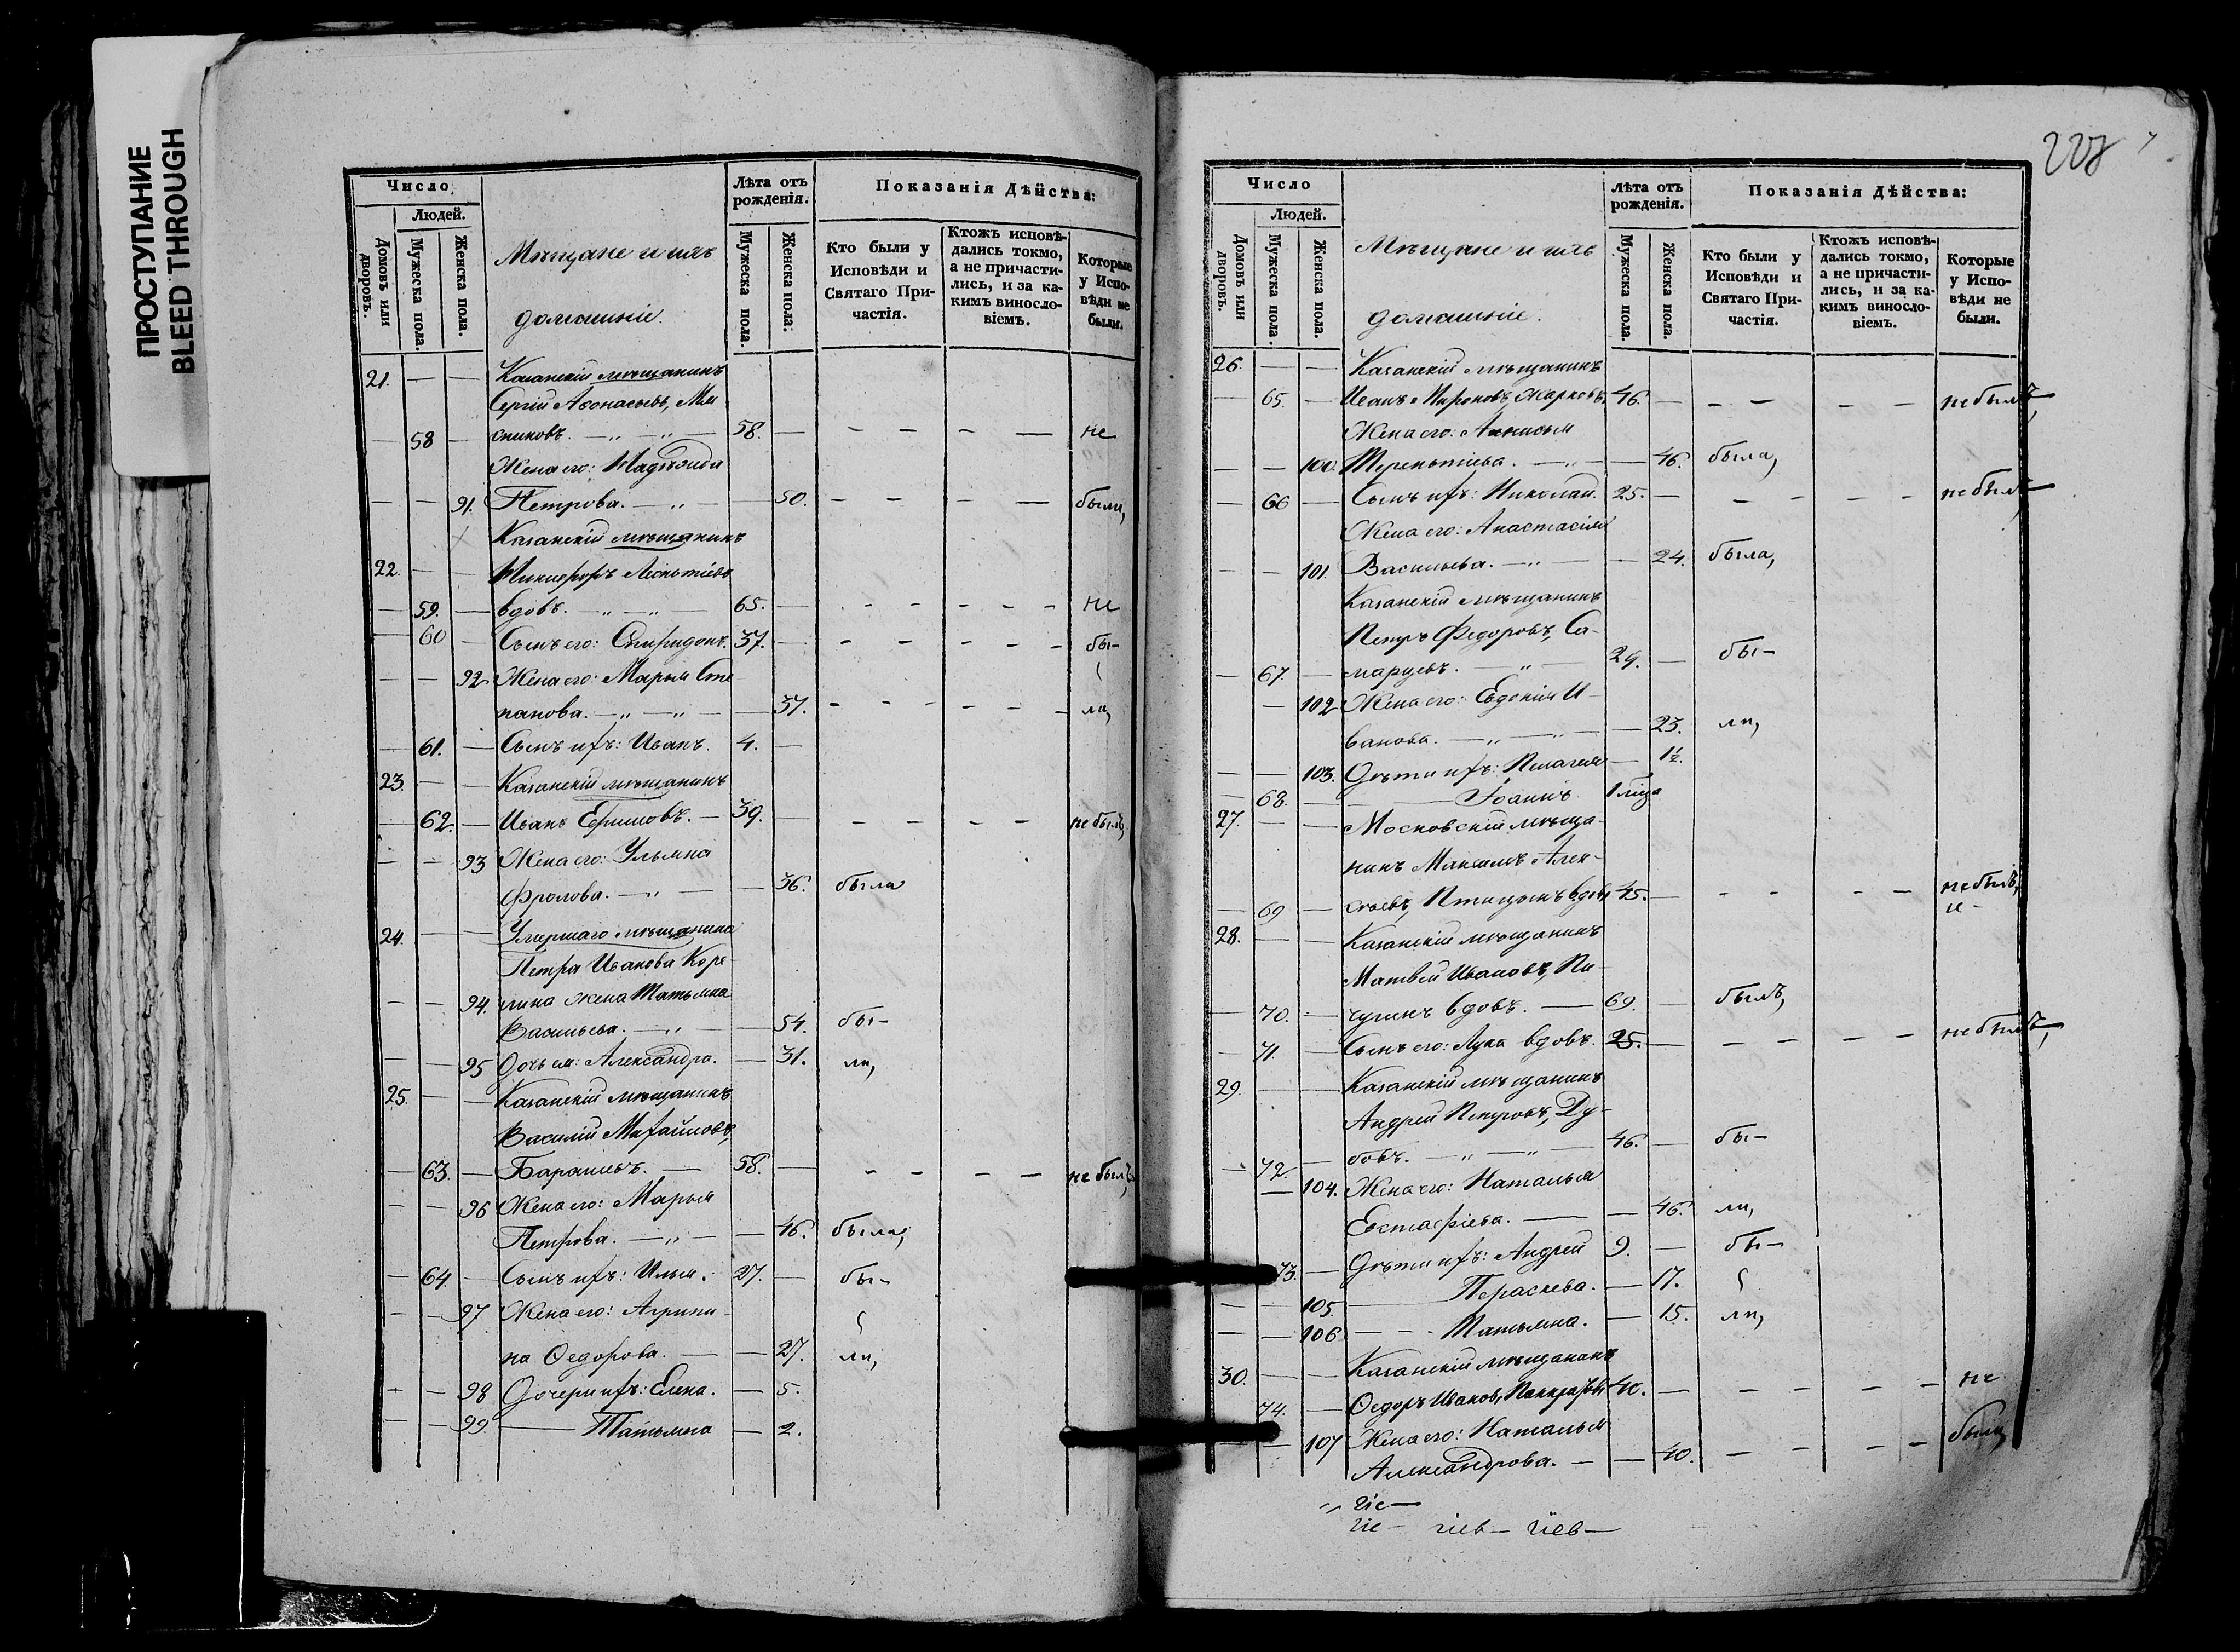 ПРОСТУПАНИЕ
BLEED THROUGH
Число
Людей.
Домовъ или дворовъ.
Мужеска пола.
Женска пола.
Мѣщане и ихъ
домашніе.
Лѣта отъ рожденія.
Мужеска пола.
Женска пола.
Показанія Дѣйства:
Кто были у Исповѣди и Святаго Причастія.
Ктожъ исповѣдались токмо, а не причастились, и за какимъ винословіемъ.
Которые у Исповѣди не были.
21. — — Казанскій мѣщанинъ
Сергій Афонасьевъ,
— 58 — 58. — не
Жена его:
— — 91. Петрова. — 50. были,
Казанскій мѣщанинъ
22. — — Никифоръ Леонтіевъ
— 59. — вдовъ. 65. — не
— 60 — Сынъ его: Спиридонъ. 37. — бы-
— — 92 Жена его: Марья Сте
панова. — 37. ли,
— 61. — Сынъ ихъ: Иванъ. 4. —
23. — — Казанскій мѣщанинъ
— 62. — Иванъ Ефимовъ. — 39. — не былъ,
— — 93 Жена его: Ульяна
Фролова. — 36. была
24. — — Умершаго мѣщанина
Петра Иванова Коре
— — 94. лина жена Татьяна
Васильева. — 54. бы-
— — 95 Дочь ея: Александра. — 31. ли,
25. — — Казанскій мѣщанинъ
Василій Михайловъ,
— 63. — Барашевъ. — 58. — не былъ
— — 96 Жена его: Марья
Петрова. — 46. была,
— 64. — Сынъ ихъ: Илья. 27. — бы-
— — 97 Жена его: Агрипи-
на Ѳедорова. — 27. ли,
— — 98 Дочери ихъ: Елена. — 5.
— — 99. — Татьяна — 2.
Число
Людей.
Домовъ или дворовъ.
Мужеска пола.
Женска пола.
Мѣщане и ихъ
домашніе.
Лѣта отъ рожденія.
Мужеска пола.
Женска пола.
Показанія Дѣйства:
Кто были у Исповѣди и Святаго Причастія.
Ктожъ исповѣдались токмо, а не причастились, и за какимъ винословіемъ.
Которые у Исповѣди не были.
26. — — Казанскій мѣщанинъ
— 65. — Иванъ Мироновъ, Жарковъ, 46. — не былъ,
Жена его:
— — 100. Терентіева. — 46. была,
— 66 — Сынъ ихъ: Николай. 25. — не былъ
Жена его: Анастасія
— — 101. Васильева. — 24. была,
Казанскій мѣщанинъ
Петръ Федоровъ, Са-
— 67. — марцевъ. 29. — бы-
— 102 Жена его: Евдокія И-
ванова. — 23. ли,
— — 103. Дѣти ихъ: Пелагея — 1½.
— 68. — Іоаннъ.
27. — — Московскій мѣща-
нинъ Максимъ Алек-
— 69 — сѣевъ, Птицынъ вдовъ 45. — не былъ,
28. — — Казанскій мѣщанинъ
Матвей Ивановъ, Пи-
— 70. — чугинъ вдовъ. — 69. — былъ,
— 71. — Сынъ его: Лука вдовъ. 25. — не былъ,
29. — — Казанскій мѣщанинъ
Андрей Петровъ, Ду-
— 72. — бовъ. 46. — бы-
— 104. Жена его: Наталья
Естафіева. — 46. ли,
73. — Дѣти ихъ: Андрей 9. — бы-
— — 105. — Параскева. — 17.
— — 106 — Татьяна. — 15. ли,
30. — — Казанскій мѣщанинъ
74. — Ѳедоръ Ивановъ, 40. — не
— 107 Жена его: Наталья
Александрова. — 40. были,